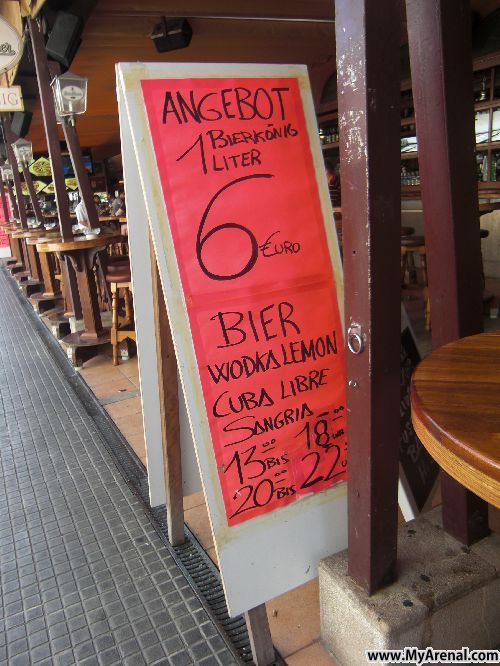 ANGEBOT
1 BIERKÖNIG
LITER
6 €URO
BIER
WODKA LEMON
CUBA LIBRE
SANGRIA
13⁰⁰ BIS 18⁰⁰
20⁰⁰ BIS 22
www.MyArenal.com